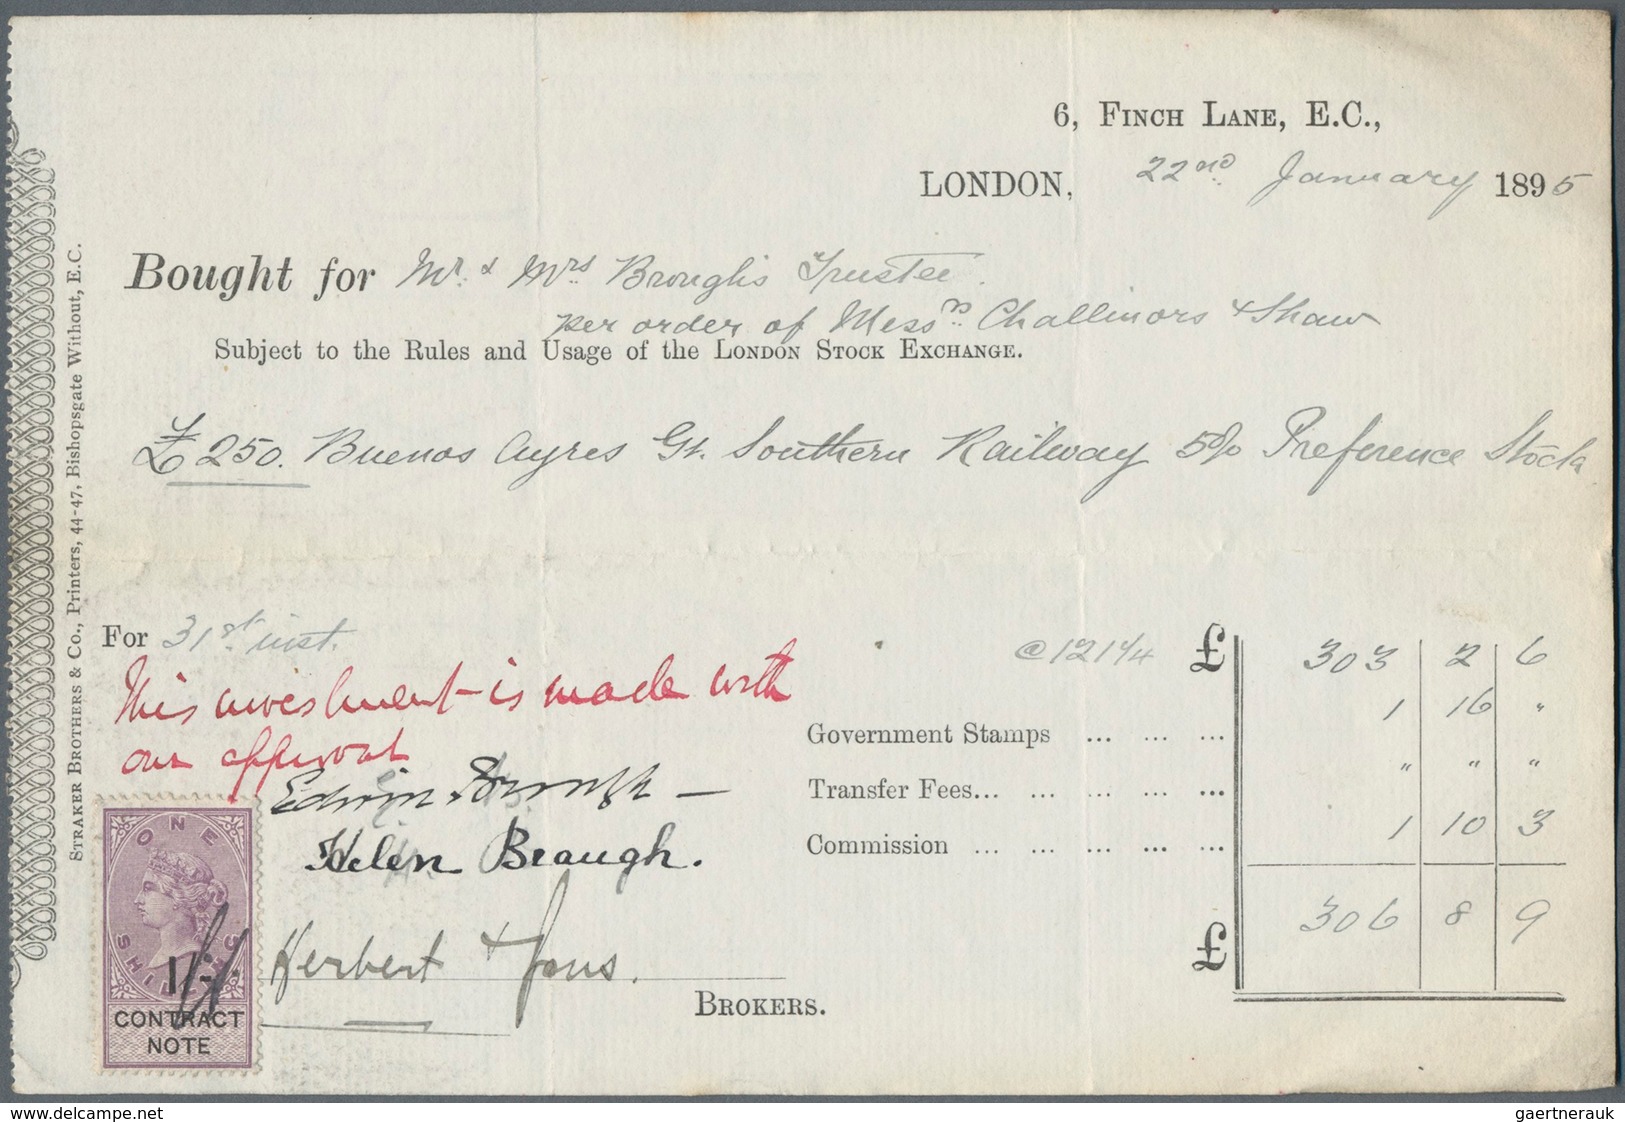 6, FINCH LANE, E.C.,
LONDON, 22nd January 1895
Bought for Mr. & Mrs. Brough's Trustee.
per order of Messrs. Challinors & Shaw
Subject to the Rules and Usage of the LONDON STOCK EXCHANGE.
£250. Buenos Ayres Gt. Southern Railway 5% Preference Stock
STRAKER BROTHERS & Co., Printers, 44-47, Bishopsgate Without, E.C.
For 31st inst. @ 121 1/4 £ 303 2 6
This investment is made with
our approval
Government Stamps ... ... ... 1 16 "
Edwin Brough —
Transfer Fees... ... ... ... ... " " "
Helen Brough.
Commission ... ... ... ... ... 1 10 3
£ 306 8 9
Herbert & Sons.
BROKERS.
ONE
SHILLING
1/-
CONTRACT
NOTE
www.delcampe.net
gaertnerauk